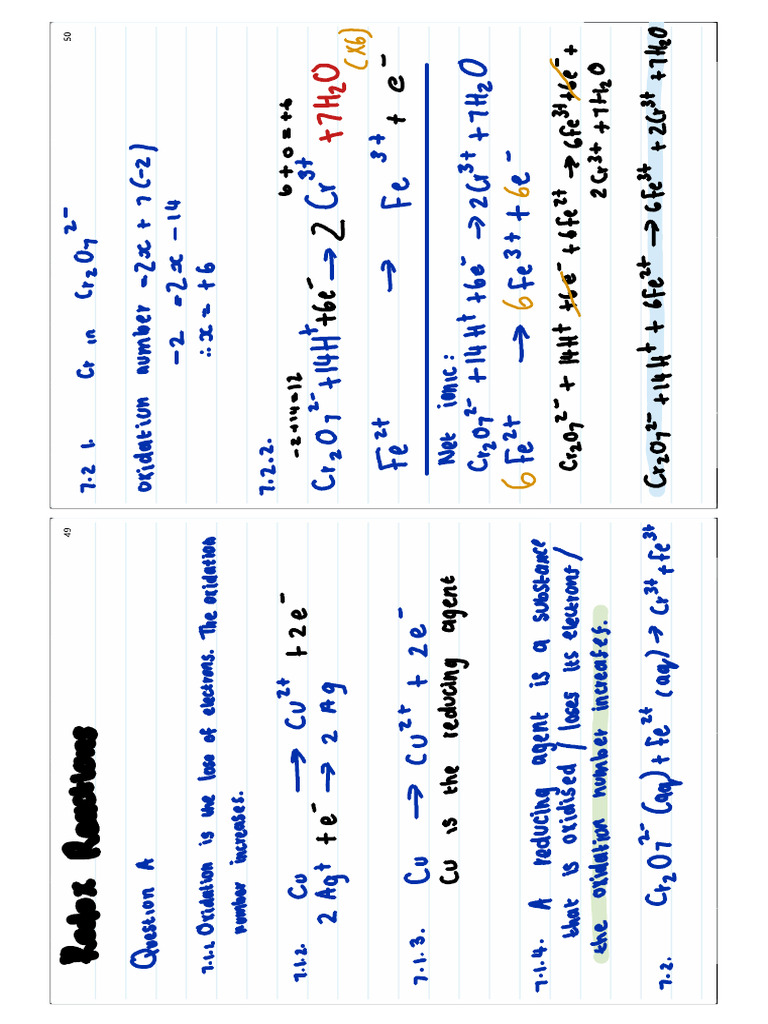 49
Redox Reactions
Question A
7.1.1 Oxidation is the loss of electrons. The oxidation
number increases.
7.1.2. Cu → Cu²⁺ + 2e⁻
2 Ag⁺ + e⁻ → 2 Ag
7.1.3. Cu → Cu²⁺ + 2e⁻
Cu is the reducing agent
7.1.4. A reducing agent is a substance
that is oxidised / loses its electrons /
the oxidation number increases.
7.2. Cr₂O₇²⁻ (aq) + Fe²⁺ (aq) → Cr³⁺ + Fe³⁺
50
7.2 1. Cr in Cr₂O₇²⁻
oxidation number = 2x + 7(-2)
-2 = 2x - 14
∴ x = +6
7.2.2. -2+14=12 6+0=+6
Cr₂O₇²⁻ + 14H⁺ + 6e⁻ → 2 Cr³⁺ + 7H₂O
Fe²⁺ → Fe³⁺ + e⁻ (x6)
Net ionic:
Cr₂O₇²⁻ + 14H⁺ + 6e⁻ → 2Cr³⁺ + 7H₂O
6Fe²⁺ → 6Fe³⁺ + 6e⁻
Cr₂O₇²⁻ + 14H⁺ + 6e⁻ + 6Fe²⁺ → 6Fe³⁺ + 6e⁻ +
2Cr³⁺ + 7H₂O
Cr₂O₇²⁻ + 14H⁺ + 6Fe²⁺ → 6Fe³⁺ + 2Cr³⁺ + 7H₂O